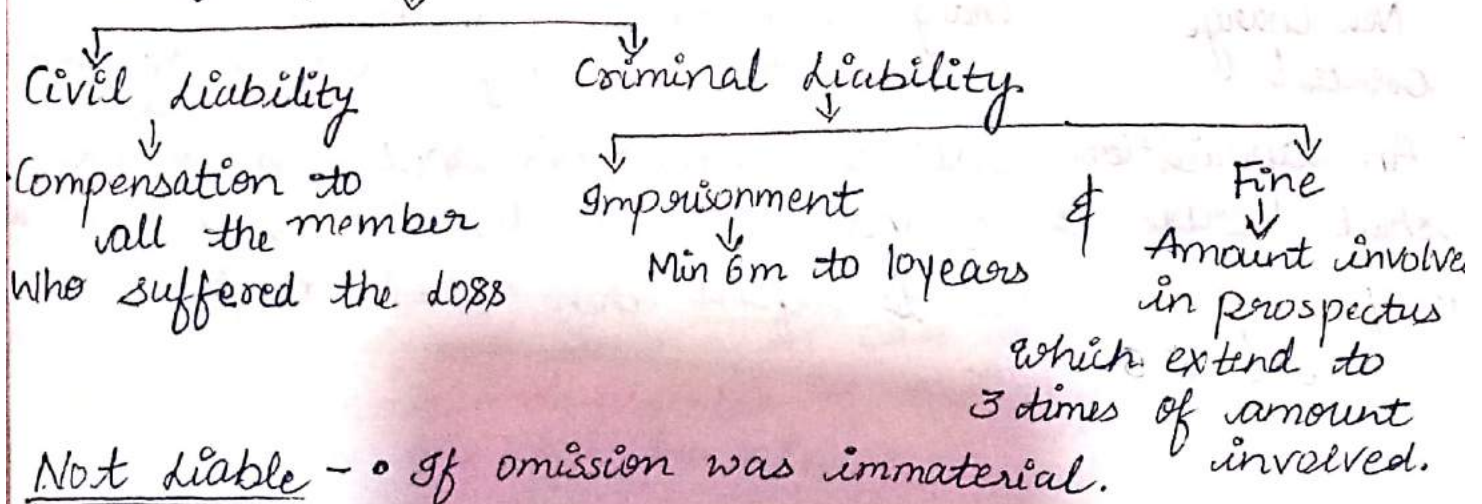 Civil Liability
Criminal Liability
Compensation to
all the member
Who suffered the loss
Imprisonment
Min 6m to 10years
&
Fine
Amount involve
in prospectus
which extend to
3 times of amount
involved.
Not Liable - • If omission was immaterial.